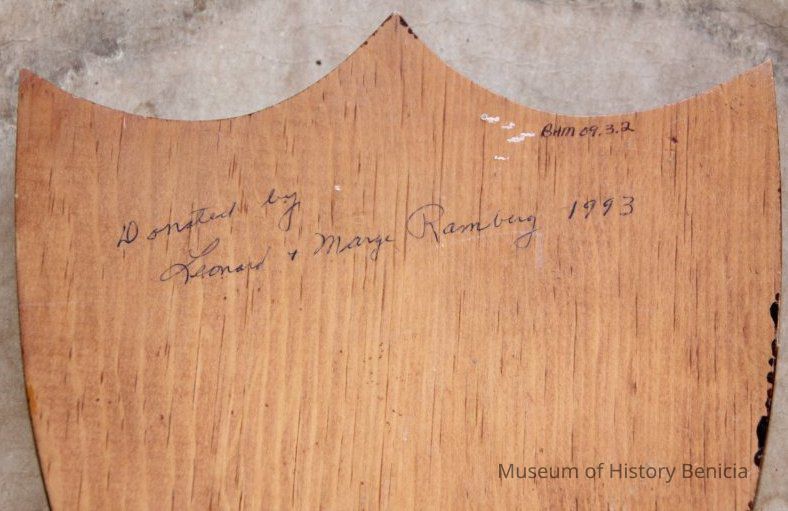 BHM 09.3.2
Donated by
Leonard + Marge Ramberg 1993
Museum of History Benicia